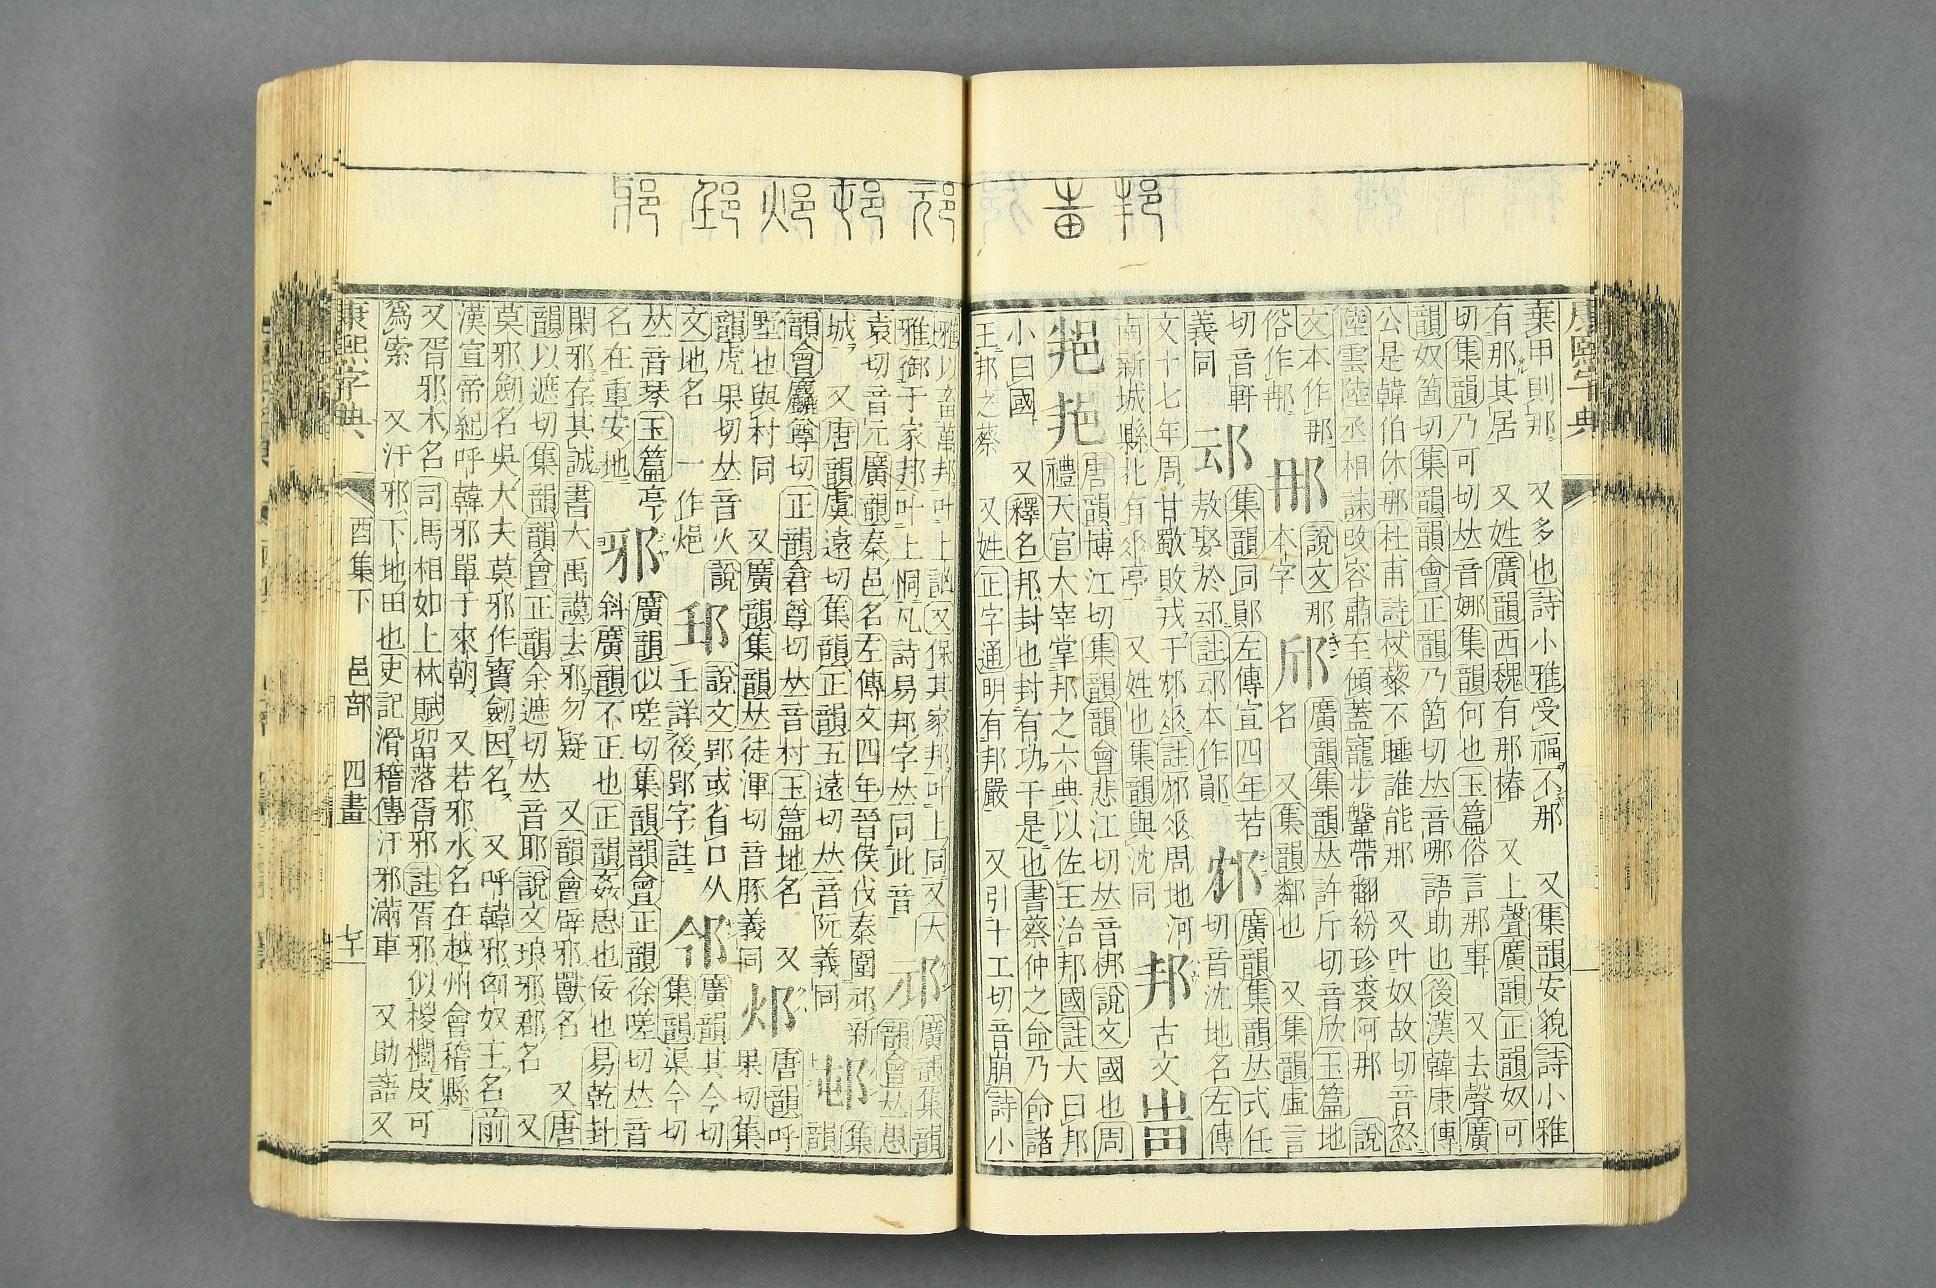 棄甲則那 又多也詩小雅受福不那 又集韻安貌詩小雅
有那其居 又姓廣韻西魏有那椿 又上聲廣韻正韻奴可
切集韻乃可切𠀤音娜集韻何也玉篇俗言那事 又去聲廣
韻奴箇切集韻韻會正韻乃箇切𠀤音哪語助也後漢韓康傳
公是韓伯休那杜甫詩杖藜不睡誰能那 又叶奴故切音怒
陸雲陸丞相誄改容肅至傾蓋寵步鞶帶翻紛珍裘阿那 說
文本作
俗作
說文那
本字
邤
廣韻集韻𠀤許斤切音欣玉篇地
名 又集韻鄰也 又集韻虛言
切音軒
䢵
集韻同鄖左傳宣四年若
敖娶於䢵註䢵本作鄖
義同
邥
廣韻集韻𠀤式任
切音沈地名左傳
文十七年周甘歜敗戎于邥垂註邥垂周地河
南新城縣北有邥亭 又姓也集韻與沈同
邦
古文
唐韻博江切集韻韻會悲江切𠀤音梆說文國也周
禮天官大宰掌邦之六典以佐王治邦國註大曰邦
小曰國 又釋名邦封也封有功于是也書蔡仲之命乃命諸
王邦之蔡 又姓正字通明有邦嚴 又引十工切音崩詩小
邦
邧
邨
邩
康熙字典
雅以畜萬邦叶上訩又保其家邦叶上同又大
雅御于家邦叶上恫凡詩易邦字𠀤同此音
邧
廣韻集韻
韻會𠀤愚
袁切音元廣韻秦邑名左傳文四年晉侯伐秦圍邧新
城 又唐韻虞遠切集韻正韻五遠切𠀤音阮義同
邨
集
韻會麤尊切正韻倉尊切𠀤音村玉篇地名 又
墅也與村同 又廣韻集韻𠀤徒渾切音豚義同
邩
唐韻呼
果切集
韻虎果切𠀤音火說
文地名 一作
說文郢或省口从
王詳後郢字註
廣韻其今切
集韻渠今切
𠀤音琴玉篇亭
名在重安地
邪
廣韻似嗟切集韻韻會正韻徐嗟切𠀤音
斜廣韻不正也正韻姦思也佞也易乾卦
閑邪存其誠書大禹謨去邪勿疑 又韻會辟邪獸名 又唐
韻以遮切集韻韻會正韻余遮切𠀤音耶說文琅邪郡名 又
莫邪劒名吳大夫莫邪作寶劒因名 又呼韓邪匈奴王名前
漢宣帝紀呼韓邪單于來朝 又若邪水名在越州會稽縣
又胥邪木名司馬相如上林賦留落胥邪註胥邪似椶櫚皮可
爲索 又汙邪下地田也史記滑稽傳汙邪滿車 又助語又
康熙字典
酉集下 邑部 四畫